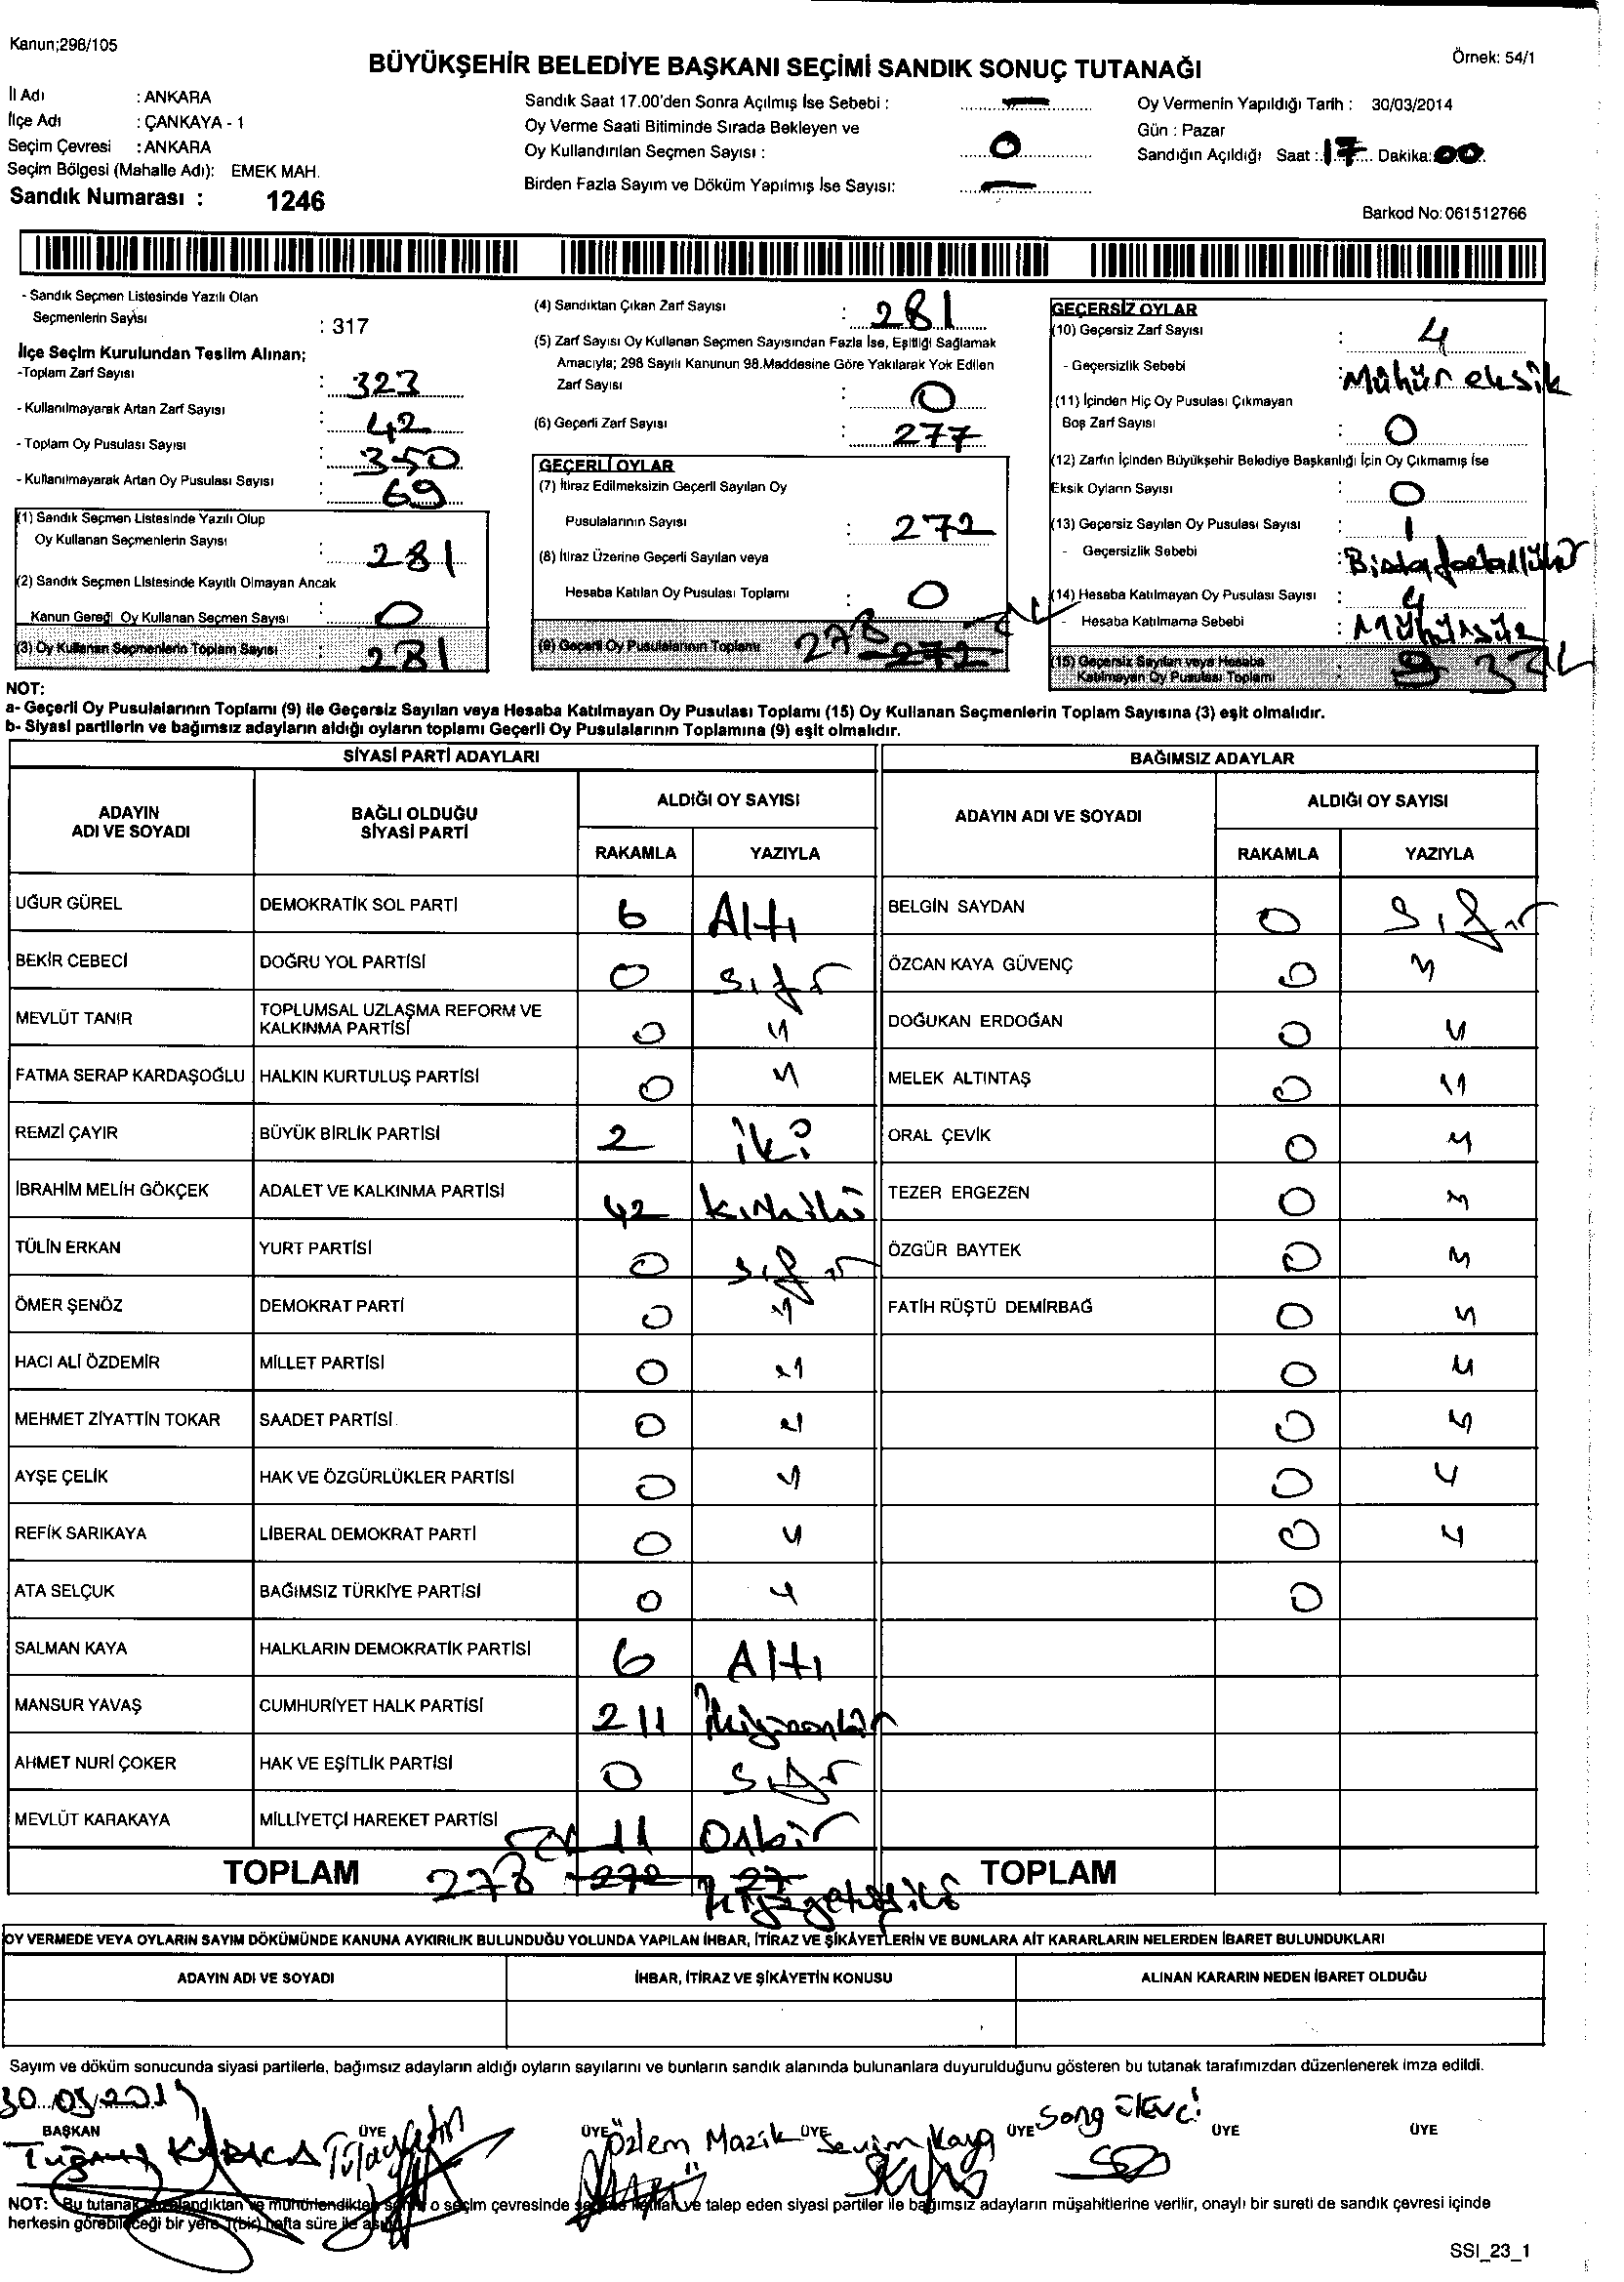 Kanun;298/105
Örnek: 54/1
BÜYÜKŞEHİR BELEDİYE BAŞKANI SEÇİMİ SANDIK SONUÇ TUTANAĞI
İl Adı : ANKARA
İlçe Adı : ÇANKAYA - 1
Seçim Çevresi : ANKARA
Seçim Bölgesi (Mahalle Adı): EMEK MAH.
Sandık Numarası : 1246
Sandık Saat 17.00'den Sonra Açılmış İse Sebebi : —
Oy Verme Saati Bitiminde Sırada Bekleyen ve
Oy Kullandırılan Seçmen Sayısı : 0
Birden Fazla Sayım ve Döküm Yapılmış İse Sayısı: —
Oy Vermenin Yapıldığı Tarih : 30/03/2014
Gün : Pazar
Sandığın Açıldığı Saat : 17 Dakika: 00
Barkod No: 061512766
- Sandık Seçmen Listesinde Yazılı Olan
Seçmenlerin Sayısı : 317
İlçe Seçim Kurulundan Teslim Alınan;
-Toplam Zarf Sayısı : 323
- Kullanılmayarak Artan Zarf Sayısı : 42
- Toplam Oy Pusulası Sayısı : 350
- Kullanılmayarak Artan Oy Pusulası Sayısı : 69
(1) Sandık Seçmen Listesinde Yazılı Olup
Oy Kullanan Seçmenlerin Sayısı : 281
(2) Sandık Seçmen Listesinde Kayıtlı Olmayan Ancak
Kanun Gereği Oy Kullanan Seçmen Sayısı : 0
(3) Oy Kullanan Seçmenlerin Toplam Sayısı : 281
(4) Sandıktan Çıkan Zarf Sayısı : 281
(5) Zarf Sayısı Oy Kullanan Seçmen Sayısından Fazla İse, Eşitliği Sağlamak
Amacıyla; 298 Sayılı Kanunun 98.Maddesine Göre Yakılarak Yok Edilen
Zarf Sayısı : 0
(6) Geçerli Zarf Sayısı : 277
GEÇERLİ OYLAR
(7) İtiraz Edilmeksizin Geçerli Sayılan Oy
Pusulalarının Sayısı : 272
(8) İtiraz Üzerine Geçerli Sayılan veya
Hesaba Katılan Oy Pusulası Toplamı : 0
(9) Geçerli Oy Pusulalarının Toplamı 278 272
GEÇERSİZ OYLAR
(10) Geçersiz Zarf Sayısı : 4
- Geçersizlik Sebebi : Mühür eksik
(11) İçinden Hiç Oy Pusulası Çıkmayan
Boş Zarf Sayısı : 0
(12) Zarfın İçinden Büyükşehir Belediye Başkanlığı İçin Oy Çıkmamış İse
Eksik Oyların Sayısı : 0
(13) Geçersiz Sayılan Oy Pusulası Sayısı : 1
- Geçersizlik Sebebi :
(14) Hesaba Katılmayan Oy Pusulası Sayısı : 4
- Hesaba Katılmama Sebebi : Mühürsüz
(15) Geçersiz Sayılan veya Hesaba
Katılmayan Oy Pusulası Toplamı : 3
NOT:
a- Geçerli Oy Pusulalarının Toplamı (9) ile Geçersiz Sayılan veya Hesaba Katılmayan Oy Pusulası Toplamı (15) Oy Kullanan Seçmenlerin Toplam Sayısına (3) eşit olmalıdır.
b- Siyasi partilerin ve bağımsız adayların aldığı oyların toplamı Geçerli Oy Pusulalarının Toplamına (9) eşit olmalıdır.
SİYASİ PARTİ ADAYLARI BAĞIMSIZ ADAYLAR
ADAYIN ADI VE SOYADI BAĞLI OLDUĞU SİYASİ PARTİ ALDIĞI OY SAYISI ADAYIN ADI VE SOYADI ALDIĞI OY SAYISI
RAKAMLA YAZIYLA RAKAMLA YAZIYLA
UĞUR GÜREL DEMOKRATİK SOL PARTİ 6 Altı BELGİN SAYDAN 0 sıfır
BEKİR CEBECİ DOĞRU YOL PARTİSİ 0 sıfır ÖZCAN KAYA GÜVENÇ 0 "
MEVLÜT TANIR TOPLUMSAL UZLAŞMA REFORM VE KALKINMA PARTİSİ 0 " DOĞUKAN ERDOĞAN 0 "
FATMA SERAP KARDAŞOĞLU HALKIN KURTULUŞ PARTİSİ 0 " MELEK ALTINTAŞ 0 "
REMZİ ÇAYIR BÜYÜK BİRLİK PARTİSİ 2 iki ORAL ÇEVİK 0 "
İBRAHİM MELİH GÖKÇEK ADALET VE KALKINMA PARTİSİ 42 kırkiki TEZER ERGEZEN 0 "
TÜLİN ERKAN YURT PARTİSİ 0 sıfır ÖZGÜR BAYTEK 0 "
ÖMER ŞENÖZ DEMOKRAT PARTİ 0 " FATİH RÜŞTÜ DEMİRBAĞ 0 "
HACI ALİ ÖZDEMİR MİLLET PARTİSİ 0 " 0 "
MEHMET ZİYATTİN TOKAR SAADET PARTİSİ 0 " 0 "
AYŞE ÇELİK HAK VE ÖZGÜRLÜKLER PARTİSİ 0 " 0 "
REFİK SARIKAYA LİBERAL DEMOKRAT PARTİ 0 " 0 "
ATA SELÇUK BAĞIMSIZ TÜRKİYE PARTİSİ 0 " 0
SALMAN KAYA HALKLARIN DEMOKRATİK PARTİSİ 6 Altı
MANSUR YAVAŞ CUMHURİYET HALK PARTİSİ 211 İkiyüzonbir
AHMET NURİ ÇOKER HAK VE EŞİTLİK PARTİSİ 0 sıfır
MEVLÜT KARAKAYA MİLLİYETÇİ HAREKET PARTİSİ 11 Onbir
TOPLAM 278 272 27 TOPLAM
OY VERMEDE VEYA OYLARIN SAYIM DÖKÜMÜNDE KANUNA AYKIRILIK BULUNDUĞU YOLUNDA YAPILAN İHBAR, İTİRAZ VE ŞİKÂYETLERİN VE BUNLARA AİT KARARLARIN NELERDEN İBARET BULUNDUKLARI
ADAYIN ADI VE SOYADI İHBAR, İTİRAZ VE ŞİKÂYETİN KONUSU ALINAN KARARIN NEDEN İBARET OLDUĞU
Sayım ve döküm sonucunda siyasi partilerle, bağımsız adayların aldığı oyların sayılarını ve bunların sandık alanında bulunanlara duyurulduğunu gösteren bu tutanak tarafımızdan düzenlenerek imza edildi.
30.03/2014
BAŞKAN ÜYE ÜYE ÜYE ÜYE ÜYE ÜYE
Özlem Mazik Sevim Kaya
NOT: Bu tutanak o seçim çevresinde ve talep eden siyasi partiler ile bağımsız adayların müşahitlerine verilir, onaylı bir sureti de sandık çevresi içinde
herkesin görebileceği bir yere 1(bir) hafta süre ile
SSI_23_1